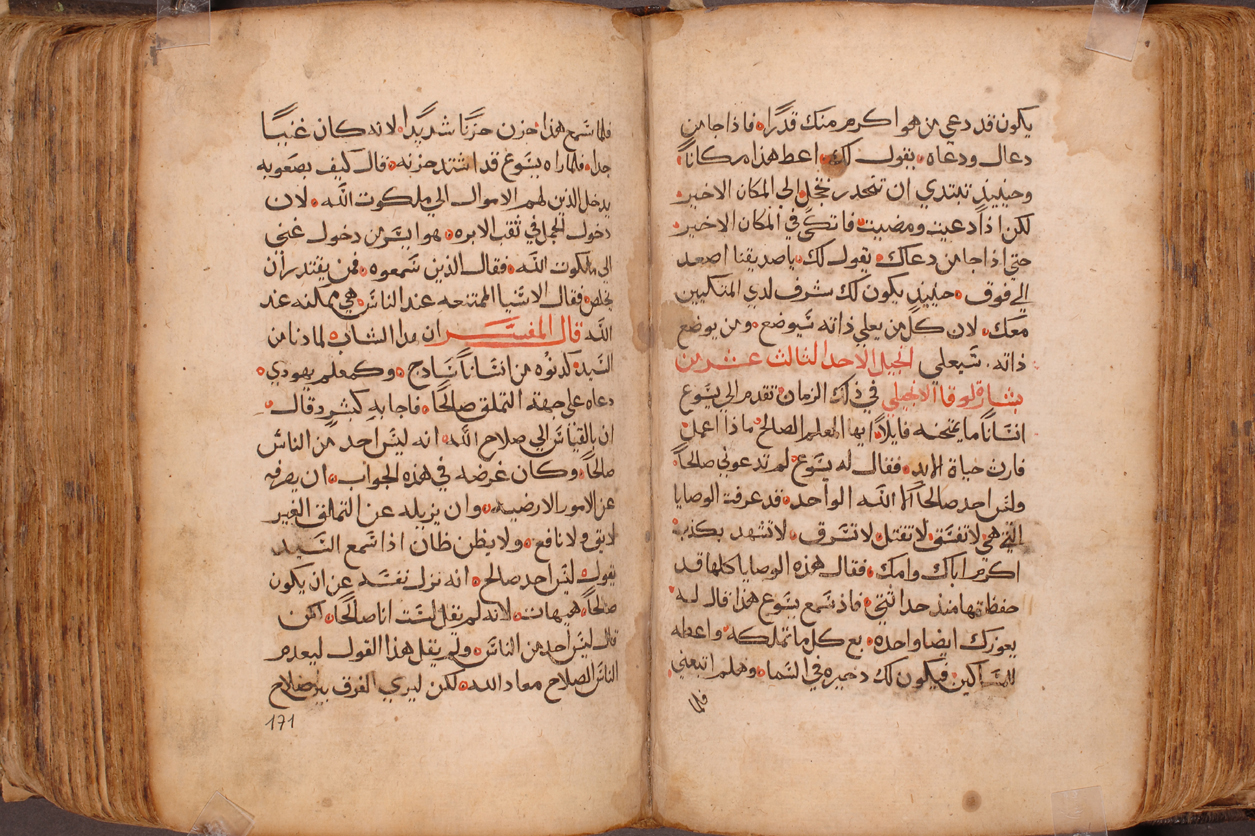 يكون قد دعي من هو اكرم منك قدرًا ۰ فاذا جا من
دعاك ودعاه ۰ يقول لك ۰ اعط هذا مكانًا ۰
وحينيذٍ تبتدي ان تنحدر بخجل الى المكان الاخير ۰
لكن اذا دعيت ومضيت ۰ فاتكي في المكان الاخير ۰
حتى اذا جا من دعاك ۰ يقول لك ۰ يا صديقنا اصعد
الى فوق ۰ حينيذٍ يكون لك شرف لدي المتكيين
معك ۰ لان كل من يعلي ذاته سيوضع ۰ ومن يوضع
ذاته ۰ سيعلي انجيل الاحد الثالث عشر من
بشارة لوقا الانجيلي في ذلك الزمان ۰ تقدم الي يسوع
انسانًا ما يمتحنه قايلاً ۰ ايها المعلم الصالح ماذا اعمل ۰
فارث حياة الابد ۰ فقال له يسوع ۰ لم تدعوني صالحًا ۰
وليس احد صالحًا الا الله الواحد ۰ قد عرفت الوصايا
التي هي لا تفسق ۰ لا تقتل ۰ لا تسرق ۰ لا تشهد بكذب ۰
اكرم اباك وامك ۰ فقال هذه الوصايا كلها قد
حفظتها منذ حداثتي ۰ فاذ سمع يسوع هذا قال له ۰
يعوزك ايضا واحده ۰ بع كل ما تملكه ۰ واعطه
للمساكين ۰ فيكون لك دخيره في السما ۰ وهلم اتبعني ۰
فلما
فلما سمع هذا حزن حزنًا شديدًا ۰ لانه كان غنيًا
جدا ۰ فلما راه يسوع قد اشتد حزنه ۰ قال كيف بصعوبه
يدخل الذين لهم الاموال الي ملكوت الله ۰ لان
دخول الجمل في ثقب الابره ۰ هو ايسر من دخول غني
الي ملكوت الله ۰ فقال الذين سمعوه ۰ فمن يقتدر ان
يخلص ۰ فقال الاشيا الممتنعه عند الناس ۰ هي ممكنه عند
الله قال المفسر ان هذا الشاب ۰ لما دنا من
السيد ۰ كدنوه من انسانًا سادج ۰ وكمعلم يهودي ۰
دعاه علي جهة التملق صالحًا ۰ فاجابه كبشرٍ وقال ۰
ان بالقياس الي صلاح الله ۰ انه ليس احد من الناس
صالحًا ۰ وكان غرضه في هذه الجواب ۰ ان يصرفه
عن الامور الارضيه ۰ وان يزيله عن التملق الغير
لايق ولا نافع ۰ ولا يظن ظان اذا سمع السيد
يقول ليس احد صالح ۰ انه نزل نفسه عن ان يكون
صالحًا ۰ هيهات ۰ لانه لم يقل لست انا صالحًا ۰ لكن
قال ليس احد من الناس ۰ ولم يقل هذا القول ليعدم
الناس الصلاح معاد الله ۰ لكن ليري الفرق بين صلاح
171